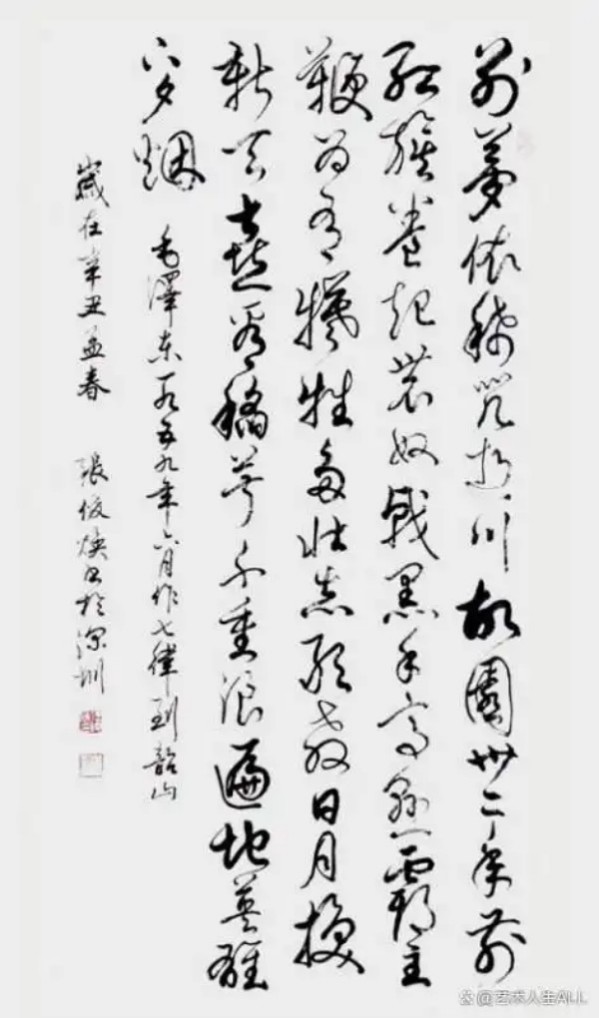 别夢依稀咒逝川故園卅二年前
紅旗卷起農奴戟黑手高懸霸主
鞭为有犧牲多壮志敢教日月换
新天喜看稻菽千重浪遍地英雄
下夕烟 毛澤东一九五九年六月作七律到韶山
歲在辛丑孟春 張俊焕书於深圳
@艺术人生ALL